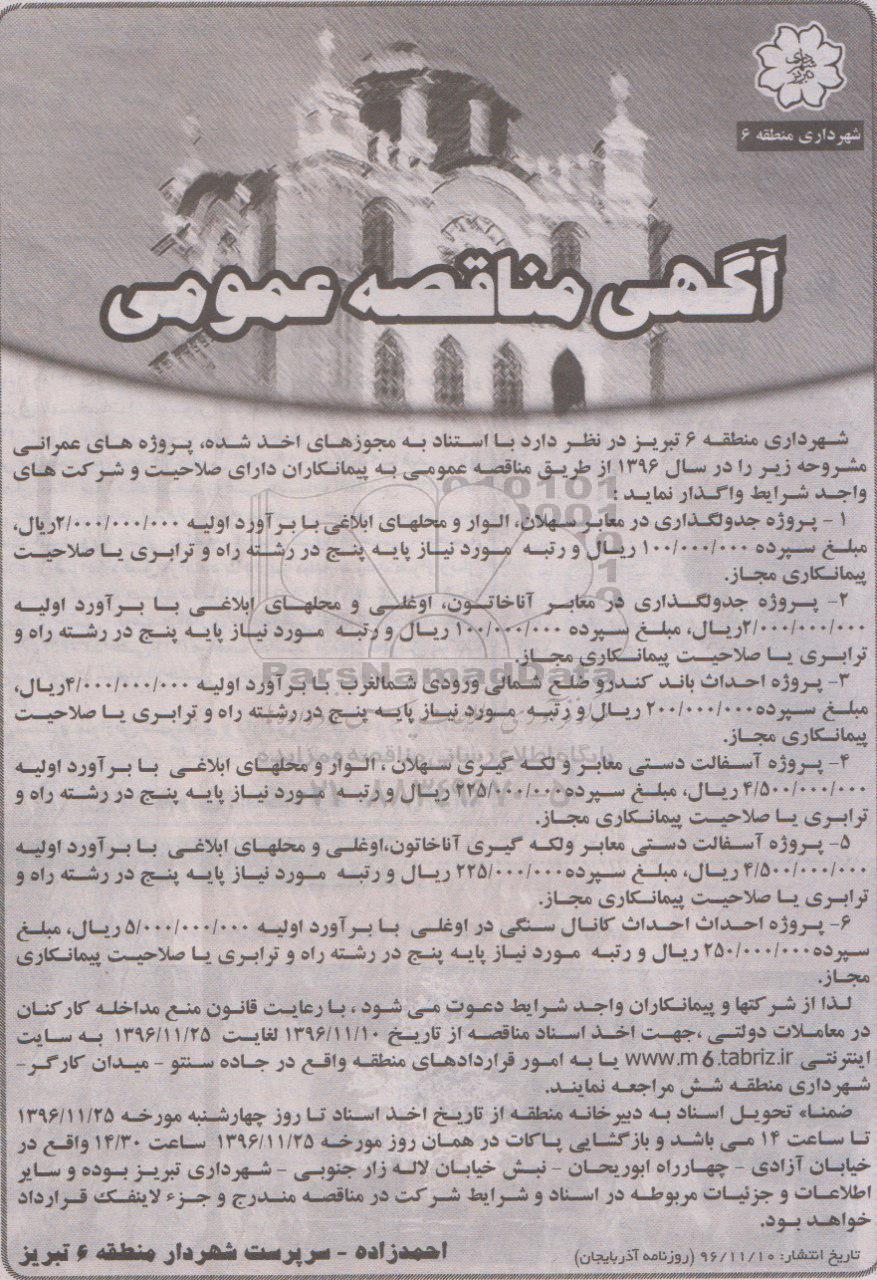 شهرداری تبریز
شهرداری منطقه ۶
آگهی مناقصه عمومی
شهرداری منطقه ۶ تبریز در نظر دارد با استناد به مجوزهای اخذ شده، پروژه های عمرانی
مشروحه زیر را در سال ۱۳۹۶ از طریق مناقصه عمومی به پیمانکاران دارای صلاحیت و شرکت های
واجد شرایط واگذار نماید :
۱ - پروژه جدولگذاری در معابر سهلان، الوار و محلهای ابلاغی با برآورد اولیه ۲/۰۰۰/۰۰۰/۰۰۰ریال،
مبلغ سپرده ۱۰۰/۰۰۰/۰۰۰ ریال و رتبه مورد نیاز پایه پنج در رشته راه و ترابری یا صلاحیت
پیمانکاری مجاز.
۲- پروژه جدولگذاری در معابر آناخاتون، اوغلی و محلهای ابلاغی با برآورد اولیه
۲/۰۰۰/۰۰۰/۰۰۰ریال، مبلغ سپرده ۱۰۰/۰۰۰/۰۰۰ ریال و رتبه مورد نیاز پایه پنج در رشته راه و
ترابری یا صلاحیت پیمانکاری مجاز.
ParsNamadData
۳- پروژه احداث باند کندرو ضلع شمالی ورودی شمالغرب با برآورد اولیه ۴/۰۰۰/۰۰۰/۰۰۰ریال،
مبلغ سپرده۲۰۰/۰۰۰/۰۰۰ ریال و رتبه مورد نیاز پایه پنج در رشته راه و ترابری یا صلاحیت
پیمانکاری مجاز.
پایگاه اطلاع رسانی مناقصه و مزایده
۴- پروژه آسفالت دستی معابر و لکه گیری سهلان ، الوار و محلهای ابلاغی با برآورد اولیه
۴/۵۰۰/۰۰۰/۰۰۰ ریال، مبلغ سپرده۲۲۵/۰۰۰/۰۰۰ ریال و رتبه مورد نیاز پایه پنج در رشته راه و
ترابری یا صلاحیت پیمانکاری مجاز.
۵- پروژه آسفالت دستی معابر ولکه گیری آناخاتون،اوغلی و محلهای ابلاغی با برآورد اولیه
۴/۵۰۰/۰۰۰/۰۰۰ ریال، مبلغ سپرده۲۲۵/۰۰۰/۰۰۰ ریال و رتبه مورد نیاز پایه پنج در رشته راه و
ترابری یا صلاحیت پیمانکاری مجاز.
۶- پروژه احداث احداث کانال سنگی در اوغلی با برآورد اولیه ۵/۰۰۰/۰۰۰/۰۰۰ ریال، مبلغ
سپرده۲۵۰/۰۰۰/۰۰۰ ریال و رتبه مورد نیاز پایه پنج در رشته راه و ترابری یا صلاحیت پیمانکاری
مجاز.
لذا از شرکتها و پیمانکاران واجد شرایط دعوت می شود ، با رعایت قانون منع مداخله کارکنان
در معاملات دولتی ،جهت اخذ اسناد مناقصه از تاریخ ۱۳۹۶/۱۱/۱۰ لغایت ۱۳۹۶/۱۱/۲۵ به سایت
اینترنتی www.m6.tabriz.ir یا به امور قراردادهای منطقه واقع در جاده سنتو - میدان کارگر-
شهرداری منطقه شش مراجعه نمایند.
ضمناً تحویل اسناد به دبیرخانه منطقه از تاریخ اخذ اسناد تا روز چهارشنبه مورخه ۱۳۹۶/۱۱/۲۵
تا ساعت ۱۴ می باشد و بازگشایی پاکات در همان روز مورخه ۱۳۹۶/۱۱/۲۵ ساعت ۱۴/۳۰ واقع در
خیابان آزادی - چهارراه ابوریحان - نبش خیابان لاله زار جنوبی - شهرداری تبریز بوده و سایر
اطلاعات و جزئیات مربوطه در اسناد و شرایط شرکت در مناقصه مندرج و جزء لاینفک قرارداد
خواهد بود.
تاریخ انتشار: ۹۶/۱۱/۱۰ (روزنامه آذربایجان)
احمدزاده - سرپرست شهردار منطقه ۶ تبریز